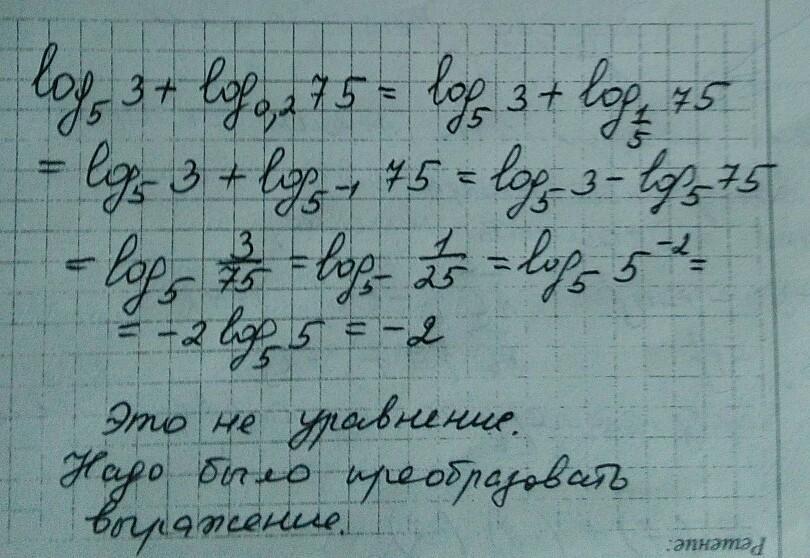 log₅ 3 + log₀,₂ 75 = log₅ 3 + log_{1/5} 75
= log₅ 3 + log₅₋₁ 75 = log₅ 3 - log₅ 75
= log₅ 3/75 = log₅ 1/25 = log₅ 5⁻² =
= -2 log₅ 5 = -2
Это не уравнение.
Надо было преобразовать
выражение.
Решение: